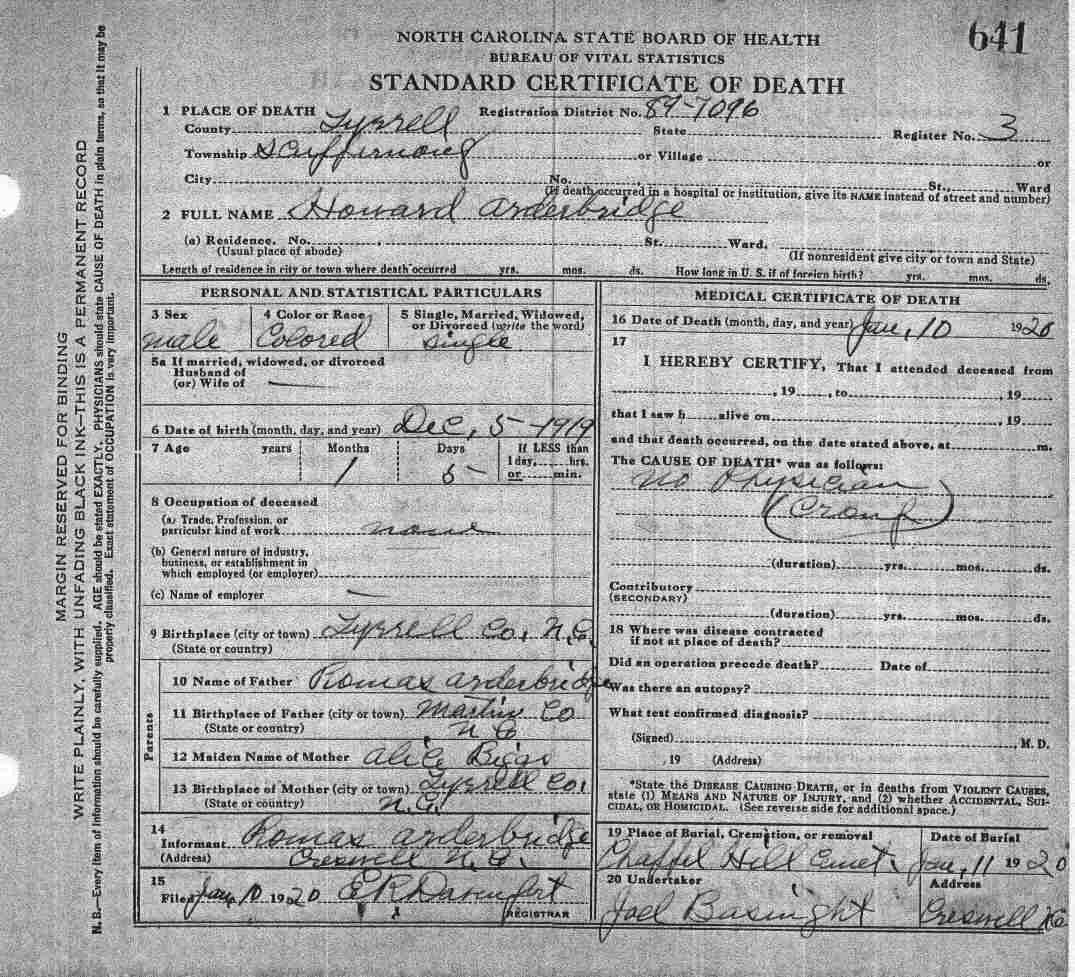 641
NORTH CAROLINA STATE BOARD OF HEALTH
BUREAU OF VITAL STATISTICS
STANDARD CERTIFICATE OF DEATH
1 PLACE OF DEATH Registration District No. 89-7096
County Tyrrell State Register No. 3
Township Scuppernong or Village or
City No. St., Ward
(If death occurred in a hospital or institution, give its NAME instead of street and number)
2 FULL NAME Howard Arderbridge
(a) Residence. No. St. Ward.
(Usual place of abode) (If nonresident give city or town and State)
Length of residence in city or town where death occurred yrs. mos. ds. How long in U. S. if of foreign birth? yrs. mos. ds.
PERSONAL AND STATISTICAL PARTICULARS
3 Sex 4 Color or Race 5 Single, Married, Widowed, or Divorced (write the word)
male Colored Single
5a If married, widowed, or divorced
Husband of
(or) Wife of
6 Date of birth (month, day, and year) Dec, 5-1919
7 Age years Months Days If LESS than
1 day, hrs.
1 5 or min.
8 Occupation of deceased
(a) Trade, Profession, or
particular kind of work none
(b) General nature of industry,
business, or establishment in
which employed (or employer)
(c) Name of employer
9 Birthplace (city or town) Tyrrell Co, N.C.
(State or country)
Parents
10 Name of Father Romax Arderbridge
11 Birthplace of Father (city or town) Martin Co
(State or country) N C
12 Maiden Name of Mother Alice Biggs
13 Birthplace of Mother (city or town) Tyrrell Co,
(State or country) N.C.
14
Informant Romax Arderbridge
(Address) Creswell N.C.
15
Filed Jan, 10 1920 E R Davenport
REGISTRAR
MEDICAL CERTIFICATE OF DEATH
16 Date of Death (month, day, and year) Jan, 10 1920
17
I HEREBY CERTIFY, That I attended deceased from
, 19 , to , 19
that I saw h alive on , 19
and that death occurred, on the date stated above, at m.
The CAUSE OF DEATH* was as follows:
No Physician
(Croup)
(duration) yrs. mos. ds.
Contributory
(SECONDARY)
(duration) yrs. mos. ds.
18 Where was disease contracted
if not at place of death?
Did an operation precede death? Date of
Was there an autopsy?
What test confirmed diagnosis?
(Signed) M. D.
, 19 (Address)
*State the DISEASE CAUSING DEATH, or in deaths from VIOLENT CAUSES,
state (1) MEANS AND NATURE OF INJURY, and (2) whether ACCIDENTAL, SUI-
CIDAL, OR HOMICIDAL. (See reverse side for additional space.)
19 Place of Burial, Cremation, or removal Date of Burial
Chappel Hill Cmet. Jan, 11 1920
20 Undertaker Address
Joel Basnight Creswell NC
MARGIN RESERVED FOR BINDING
WRITE PLAINLY, WITH UNFADING BLACK INK—THIS IS A PERMANENT RECORD
N. B.—Every item of information should be carefully supplied. AGE should be stated EXACTLY. PHYSICIANS should state CAUSE OF DEATH in plain terms, so that it may be
properly classified. Exact statement of OCCUPATION is very important.